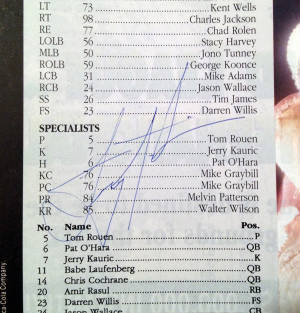 LT 73 Kent Wells
RT 98 Charles Jackson
RE 77 Chad Rolen
LOLB 56 Stacy Harvey
MLB 50 Jono Tunney
ROLB 59 George Koonce
LCB 31 Mike Adams
RCB 24 Jason Wallace
SS 26 Tim James
FS 23 Darren Willis
SPECIALISTS
P 5 Tom Rouen
K 7 Jerry Kauric
H 6 Pat O'Hara
KC 76 Mike Graybill
PC 76 Mike Graybill
PR 84 Melvin Patterson
KR 85 Walter Wilson
No. Name Pos.
5 Tom Rouen P
6 Pat O'Hara QB
7 Jerry Kauric K
11 Babe Laufenberg QB
14 Chris Cochrane QB
20 Amir Rasul RB
23 Darren Willis FS
24 Jason Wallace CB
ca-Cola Company.